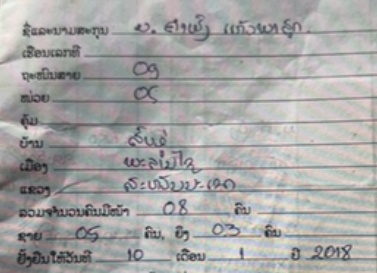 ຊື່ແລະນາມສະກຸນ ທ. ຄຳຜົງ ແກ້ວພາສຸກ.
ເຮືອນເລກທີ
ຖະໜົນສາຍ 09
ໜ່ວຍ 05
ຄຸ້ມ
ບ້ານ
ເມືອງ ພະລານໄຊ
ແຂວງ ສະຫວັນນະເຂດ
ລວມຈຳນວນຄົນມີໜ້າ 08 ຄົນ
ຊາຍ 05 ຄົນ, ຍິງ 03 ຄົນ
ຢັ້ງຢືນໃຫ້ວັນທີ 10 ເດືອນ 1 ປີ 2018